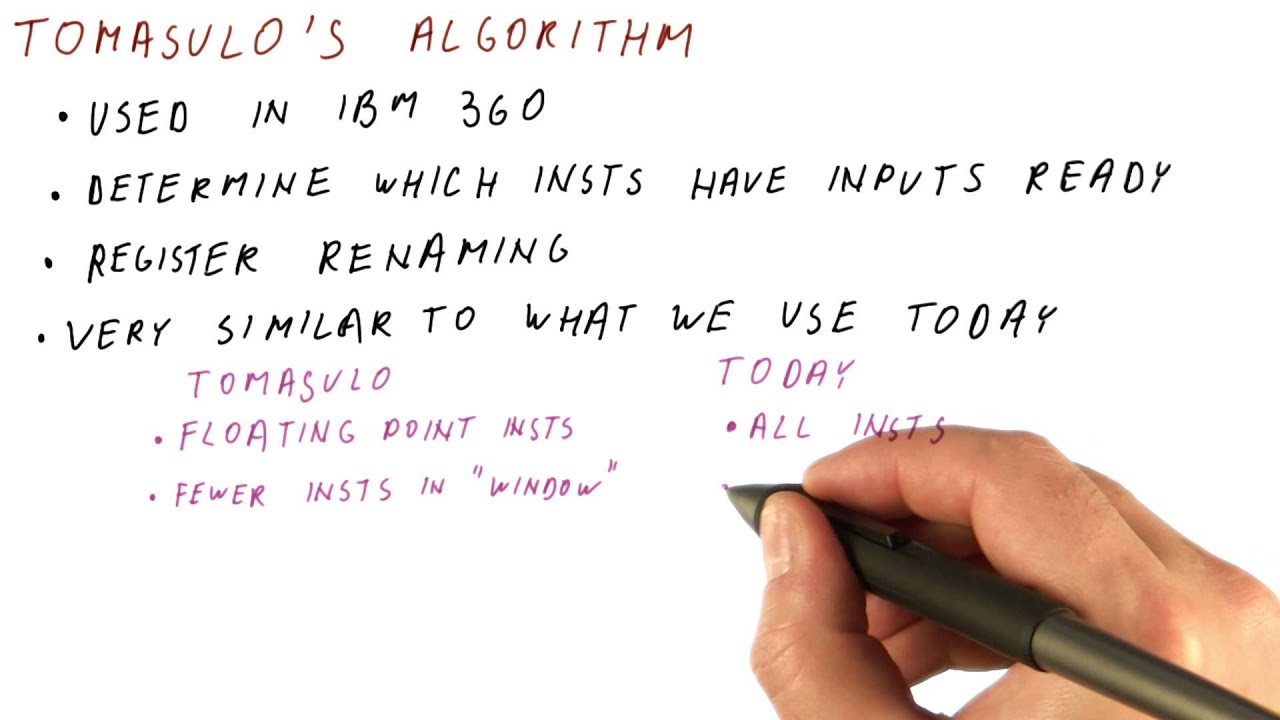 TOMASULO'S ALGORITHM
• USED IN IBM 360
• DETERMINE WHICH INSTS HAVE INPUTS READY
• REGISTER RENAMING
• VERY SIMILAR TO WHAT WE USE TODAY
TOMASULO TODAY
• FLOATING POINT INSTS • ALL INSTS
• FEWER INSTS IN "WINDOW" •